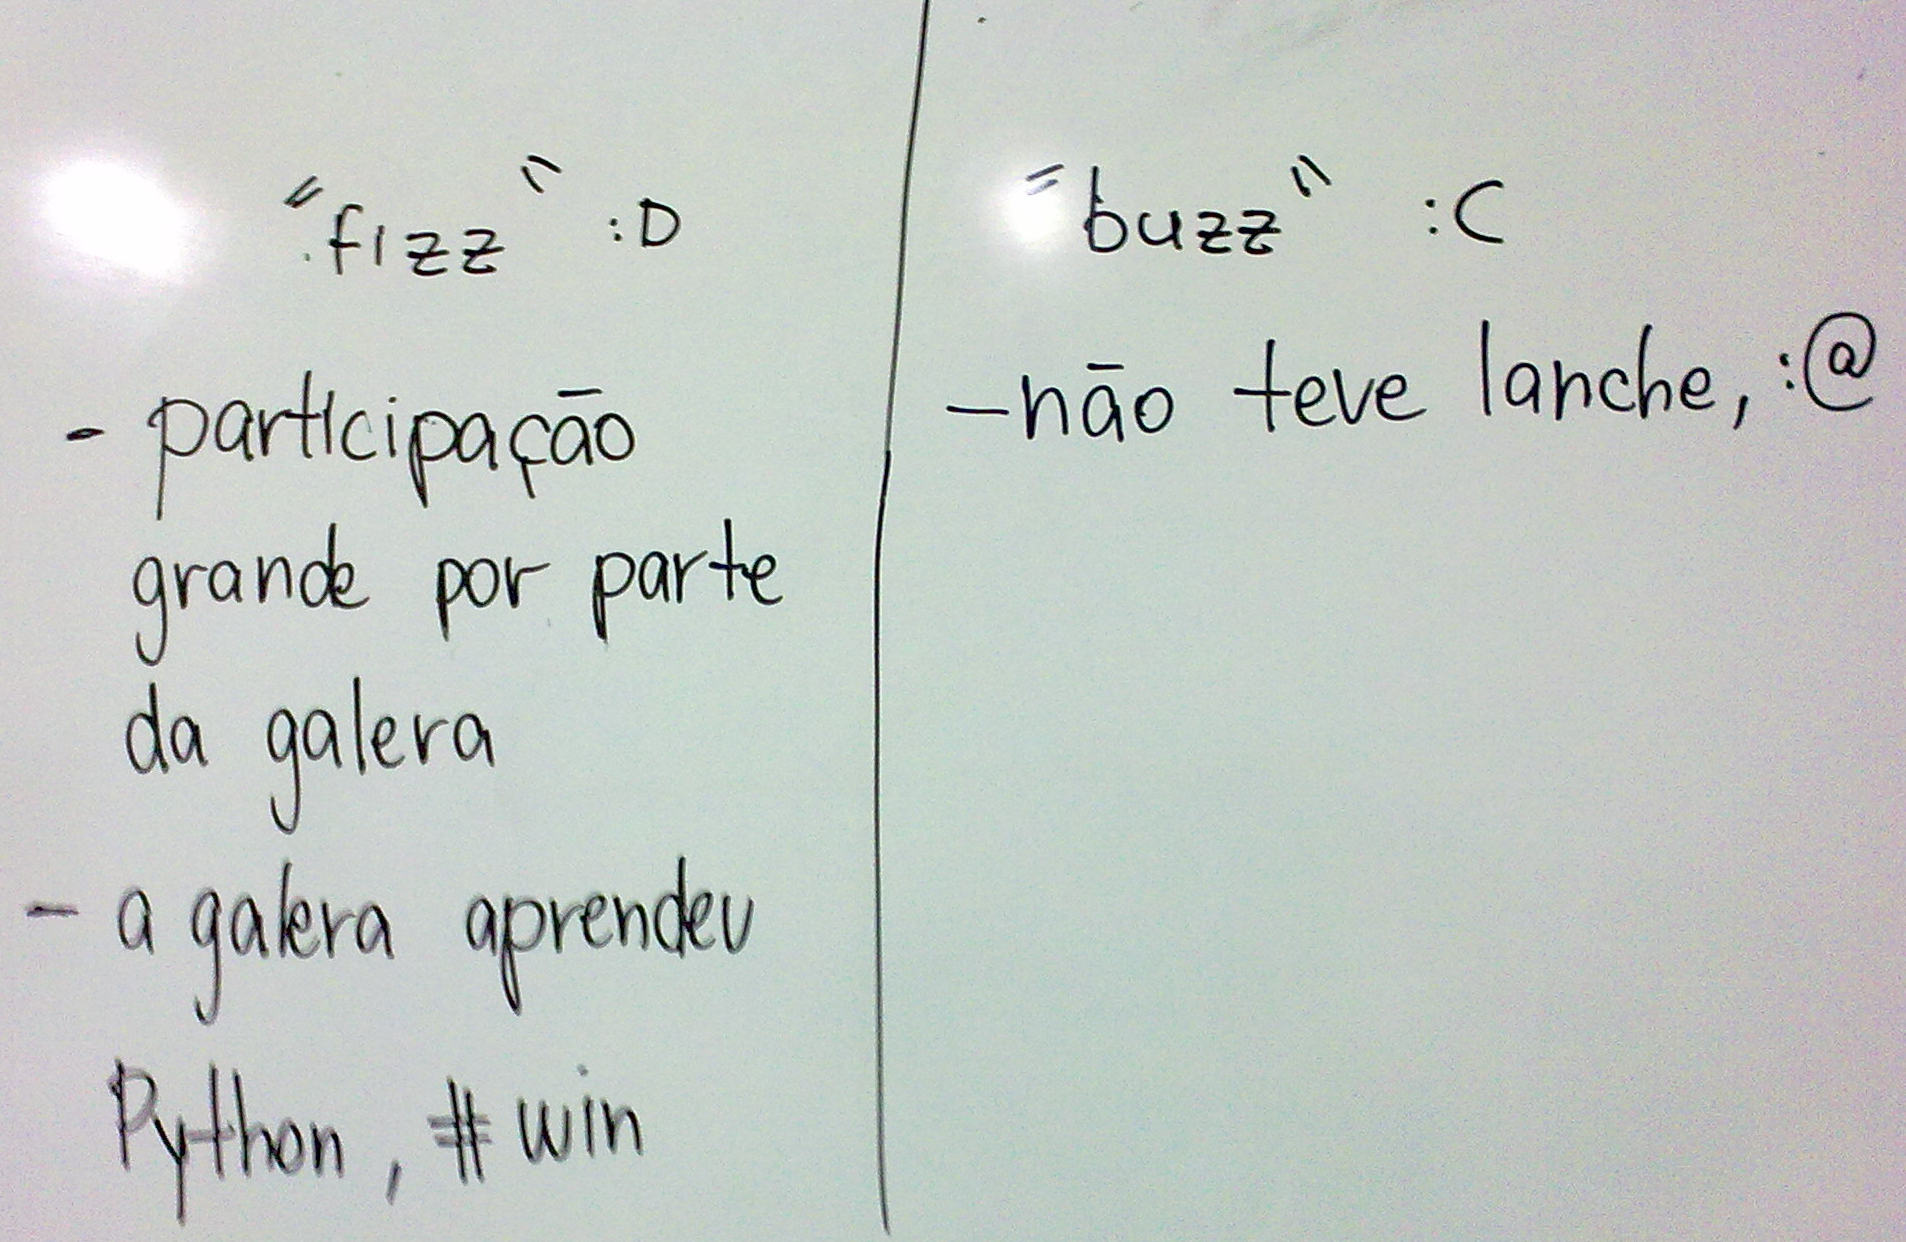 "fizz" :D
- participação
grande por parte
da galera
- a galera aprendeu
Python, #win
"buzz" :C
- não teve lanche, :@